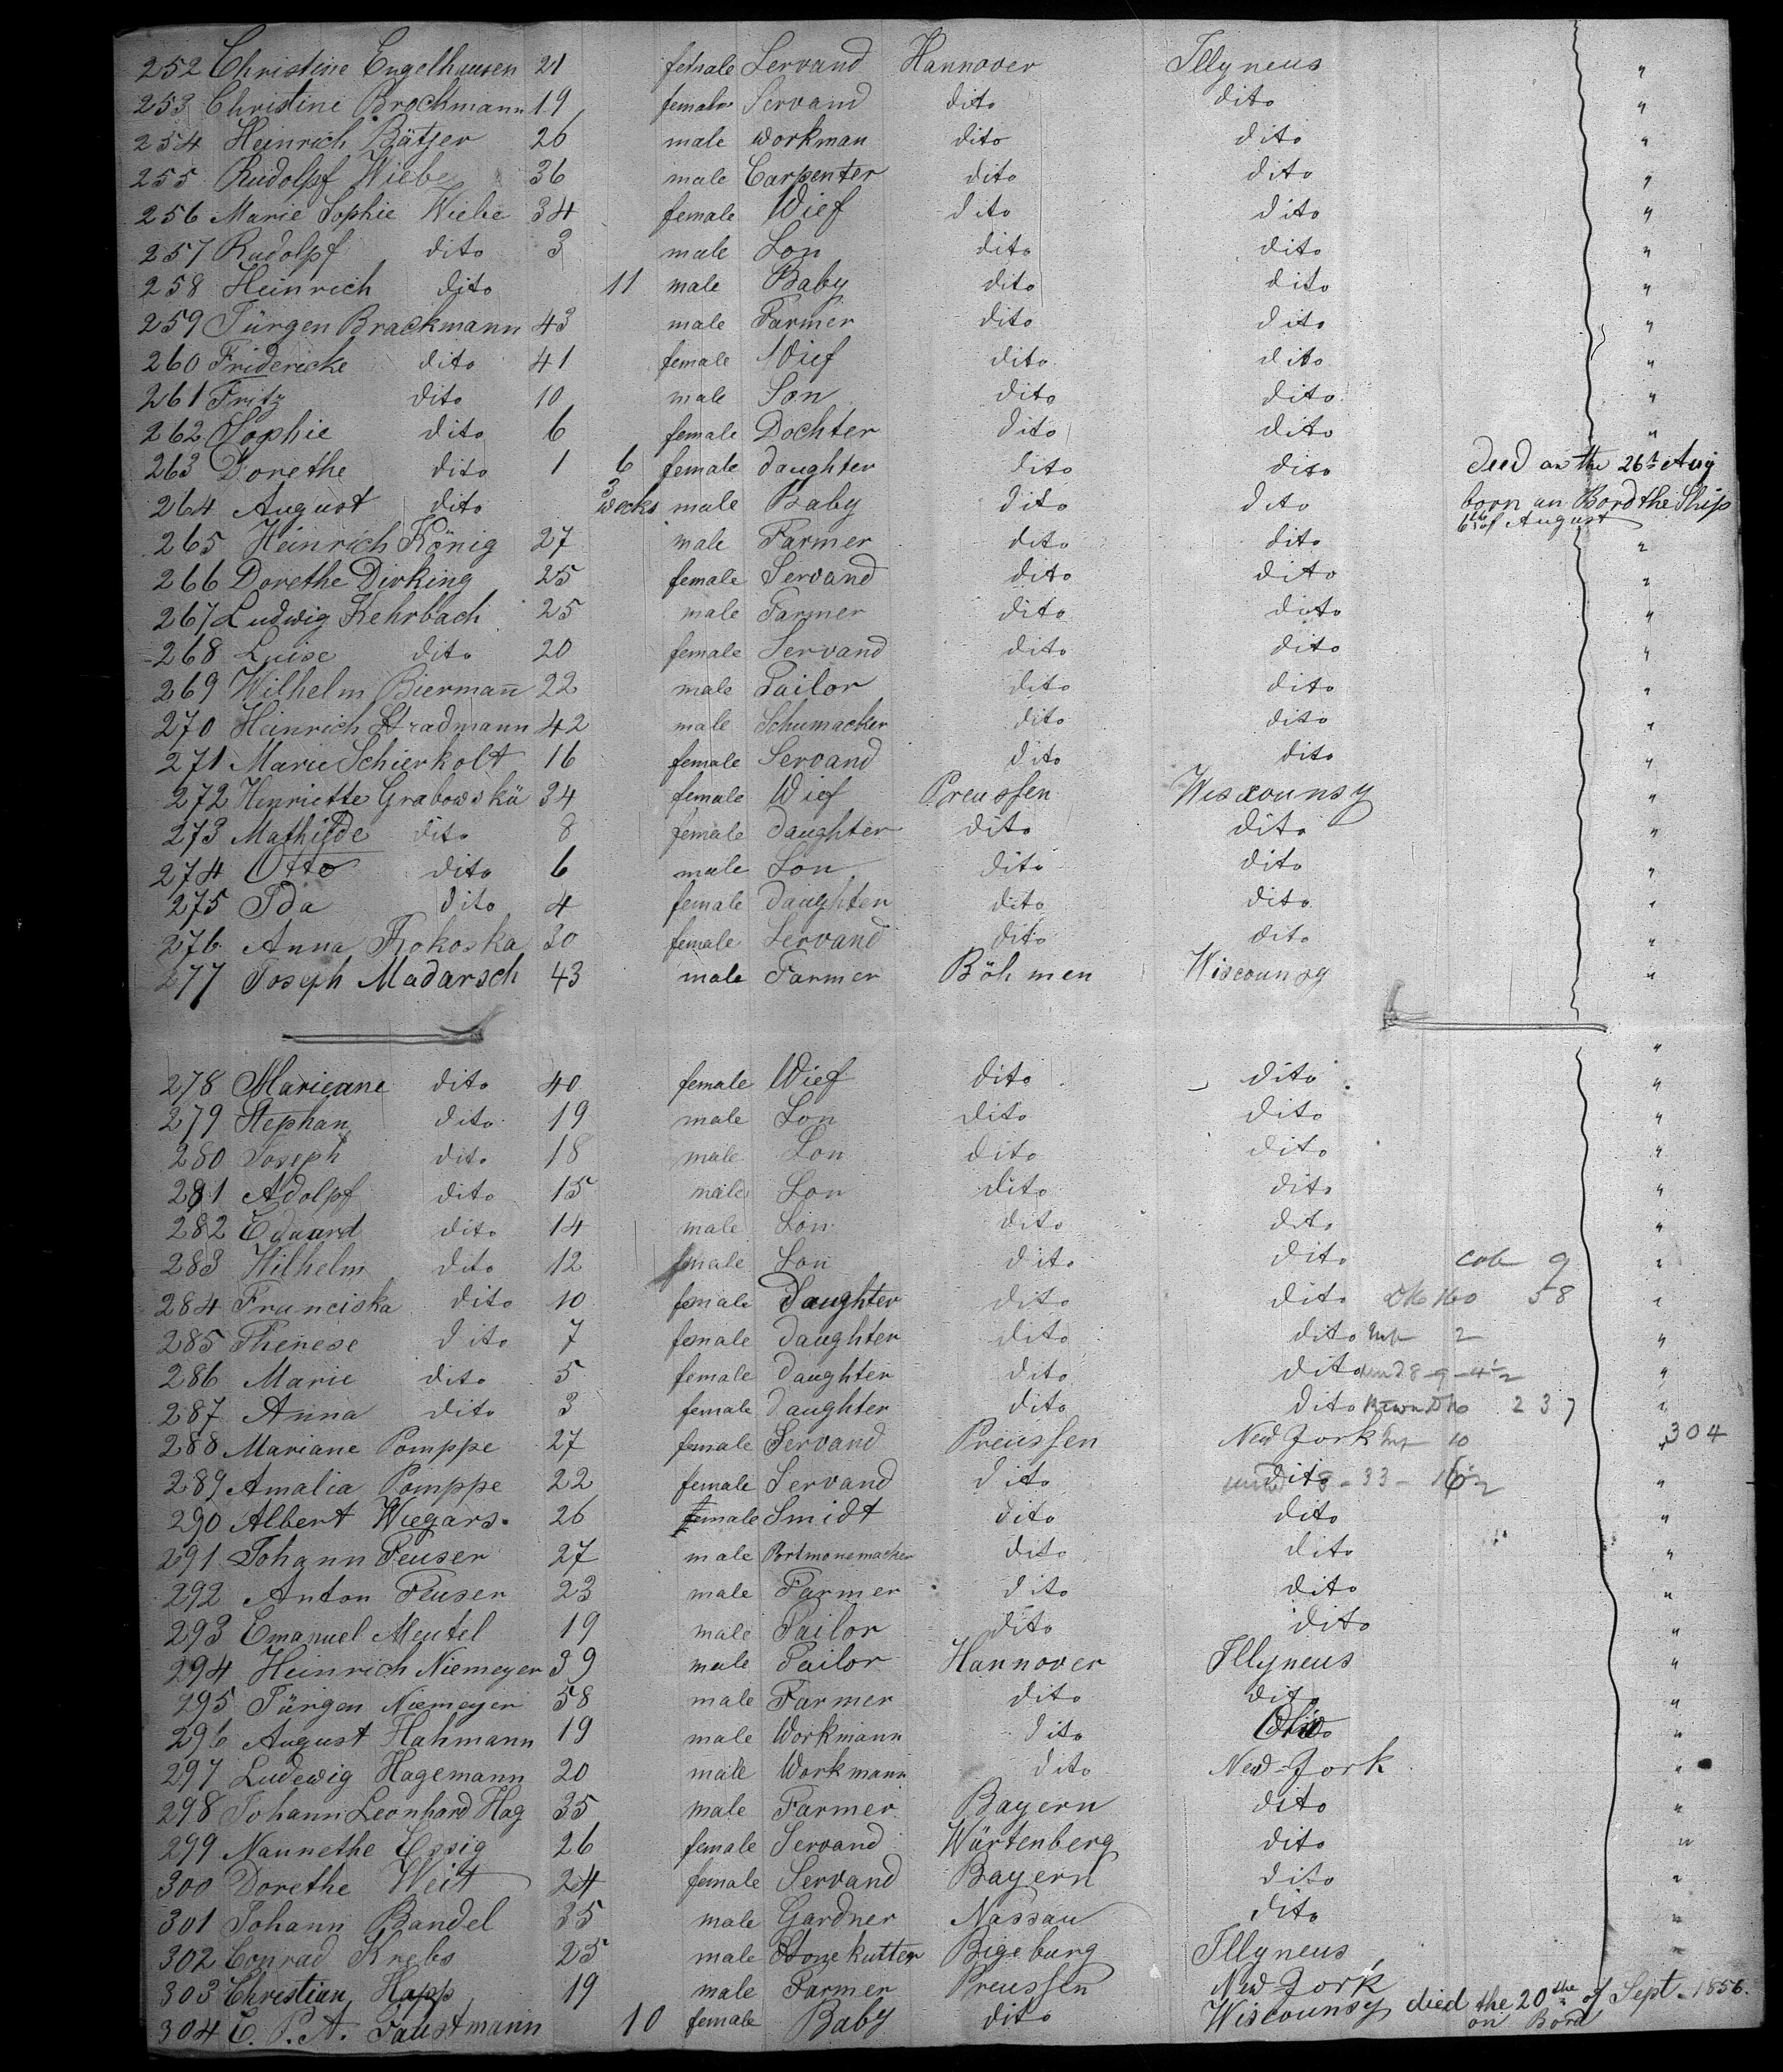 252 Christine Engelhausen 21 female Servand Hannover Illyneus "
253 Christine Brockmann 19 female Servand dito dito "
254 Heinrich Bätjer 26 male workman dito dito "
255 Rudolpf Wiebe 36 male Carpenter dito dito "
256 Marie Sophie Wiebe 34 female Wief dito dito "
257 Rudolpf dito 3 male Son dito dito "
258 Heinrich dito 11 male Baby dito dito "
259 Jürgen Brackmann 43 male Farmer dito dito "
260 Fridericke dito 41 female Wief dito dito "
261 Fritz dito 10 male Son dito dito "
262 Sophie dito 6 female Dochter dito dito "
263 Dorethe dito 1 6 female daughter dito dito died an the 26t Aug
264 August dito 3 wecks male Baby dito dito born an Bord the Ship
6th of August
265 Heinrich König 27 male Farmer dito dito "
266 Dorethe Dirking 25 female Servand dito dito "
267 Ludwig Kehrbach 25 male Farmer dito dito "
268 Luise dito 20 female Servand dito dito "
269 Wilhelm Biermann̄ 22 male Tailor dito dito "
270 Heinrich Stradmann 42 male Schumacher dito dito "
271 Marie Schierholt 16 female Servand dito dito "
272 Henriette Grabowskä 34 female Wief Preussen Wiscounsy "
273 Mathilde dito 8 female daughter dito dito "
274 Otto dito 6 male Son dito dito "
275 Ida dito 4 female daughter dito dito "
276 Anna Kokoska 30 female Servand dito dito "
277 Joseph Madarsch 43 male Farmer Böhmen Wiscounsy "
278 Marieane dito 40 female Wief dito dito "
279 Stephan dito 19 male Son dito dito "
280 Joseph dito 18 male Son dito dito "
281 Adolpf dito 15 male Son dito dito "
282 Eduard dito 14 male Son dito dito "
283 Wilhelm dito 12 male Son dito dito cab 9 "
284 Franciska dito 10 female Daughter dito dito 58 "
285 Therese dito 7 female daughter dito dito 2 "
286 Marie dito 5 female daughter dito dito "
287 Anna dito 3 female daughter dito dito 237 "
288 Mariane Pomppe 27 female Servand Preussen New Jork 10 304
289 Amalia Pomppe 22 female Servand dito dito "
290 Albert Wiegars. 26 male Smidt dito dito "
291 Johann Feuser 27 male Portmonemacher dito dito "
292 Anton Feuser 23 male Farmer dito dito "
293 Emanuel Meutel 19 male Tailor dito dito "
294 Heinrich Niemeyer 39 male Tailor Hannover Illyneus "
295 Jürgen Niemeyer 58 male Farmer dito dito "
296 August Hahmann 19 male Workmann dito "
297 Ludewig Hagemann 20 male Workmann dito New-Jork "
298 Johann Leonhard Hag 35 male Farmer Bayern dito "
299 Nannethe Essig 26 female Servand Würtenberg dito "
300 Dorethe Weit 24 female Servand Bayern dito "
301 Johann Bandel 35 male Gardner Nassau dito "
302 Conrad Krebs 25 male Stonekutter Bigeburg Illyneus "
303 Christian Happ 19 male Farmer Preussen New Jork
304 E. P. A. Faustmann 10 female Baby dito Wiscounsy died the 20the of Sept. 1856.
on Bord